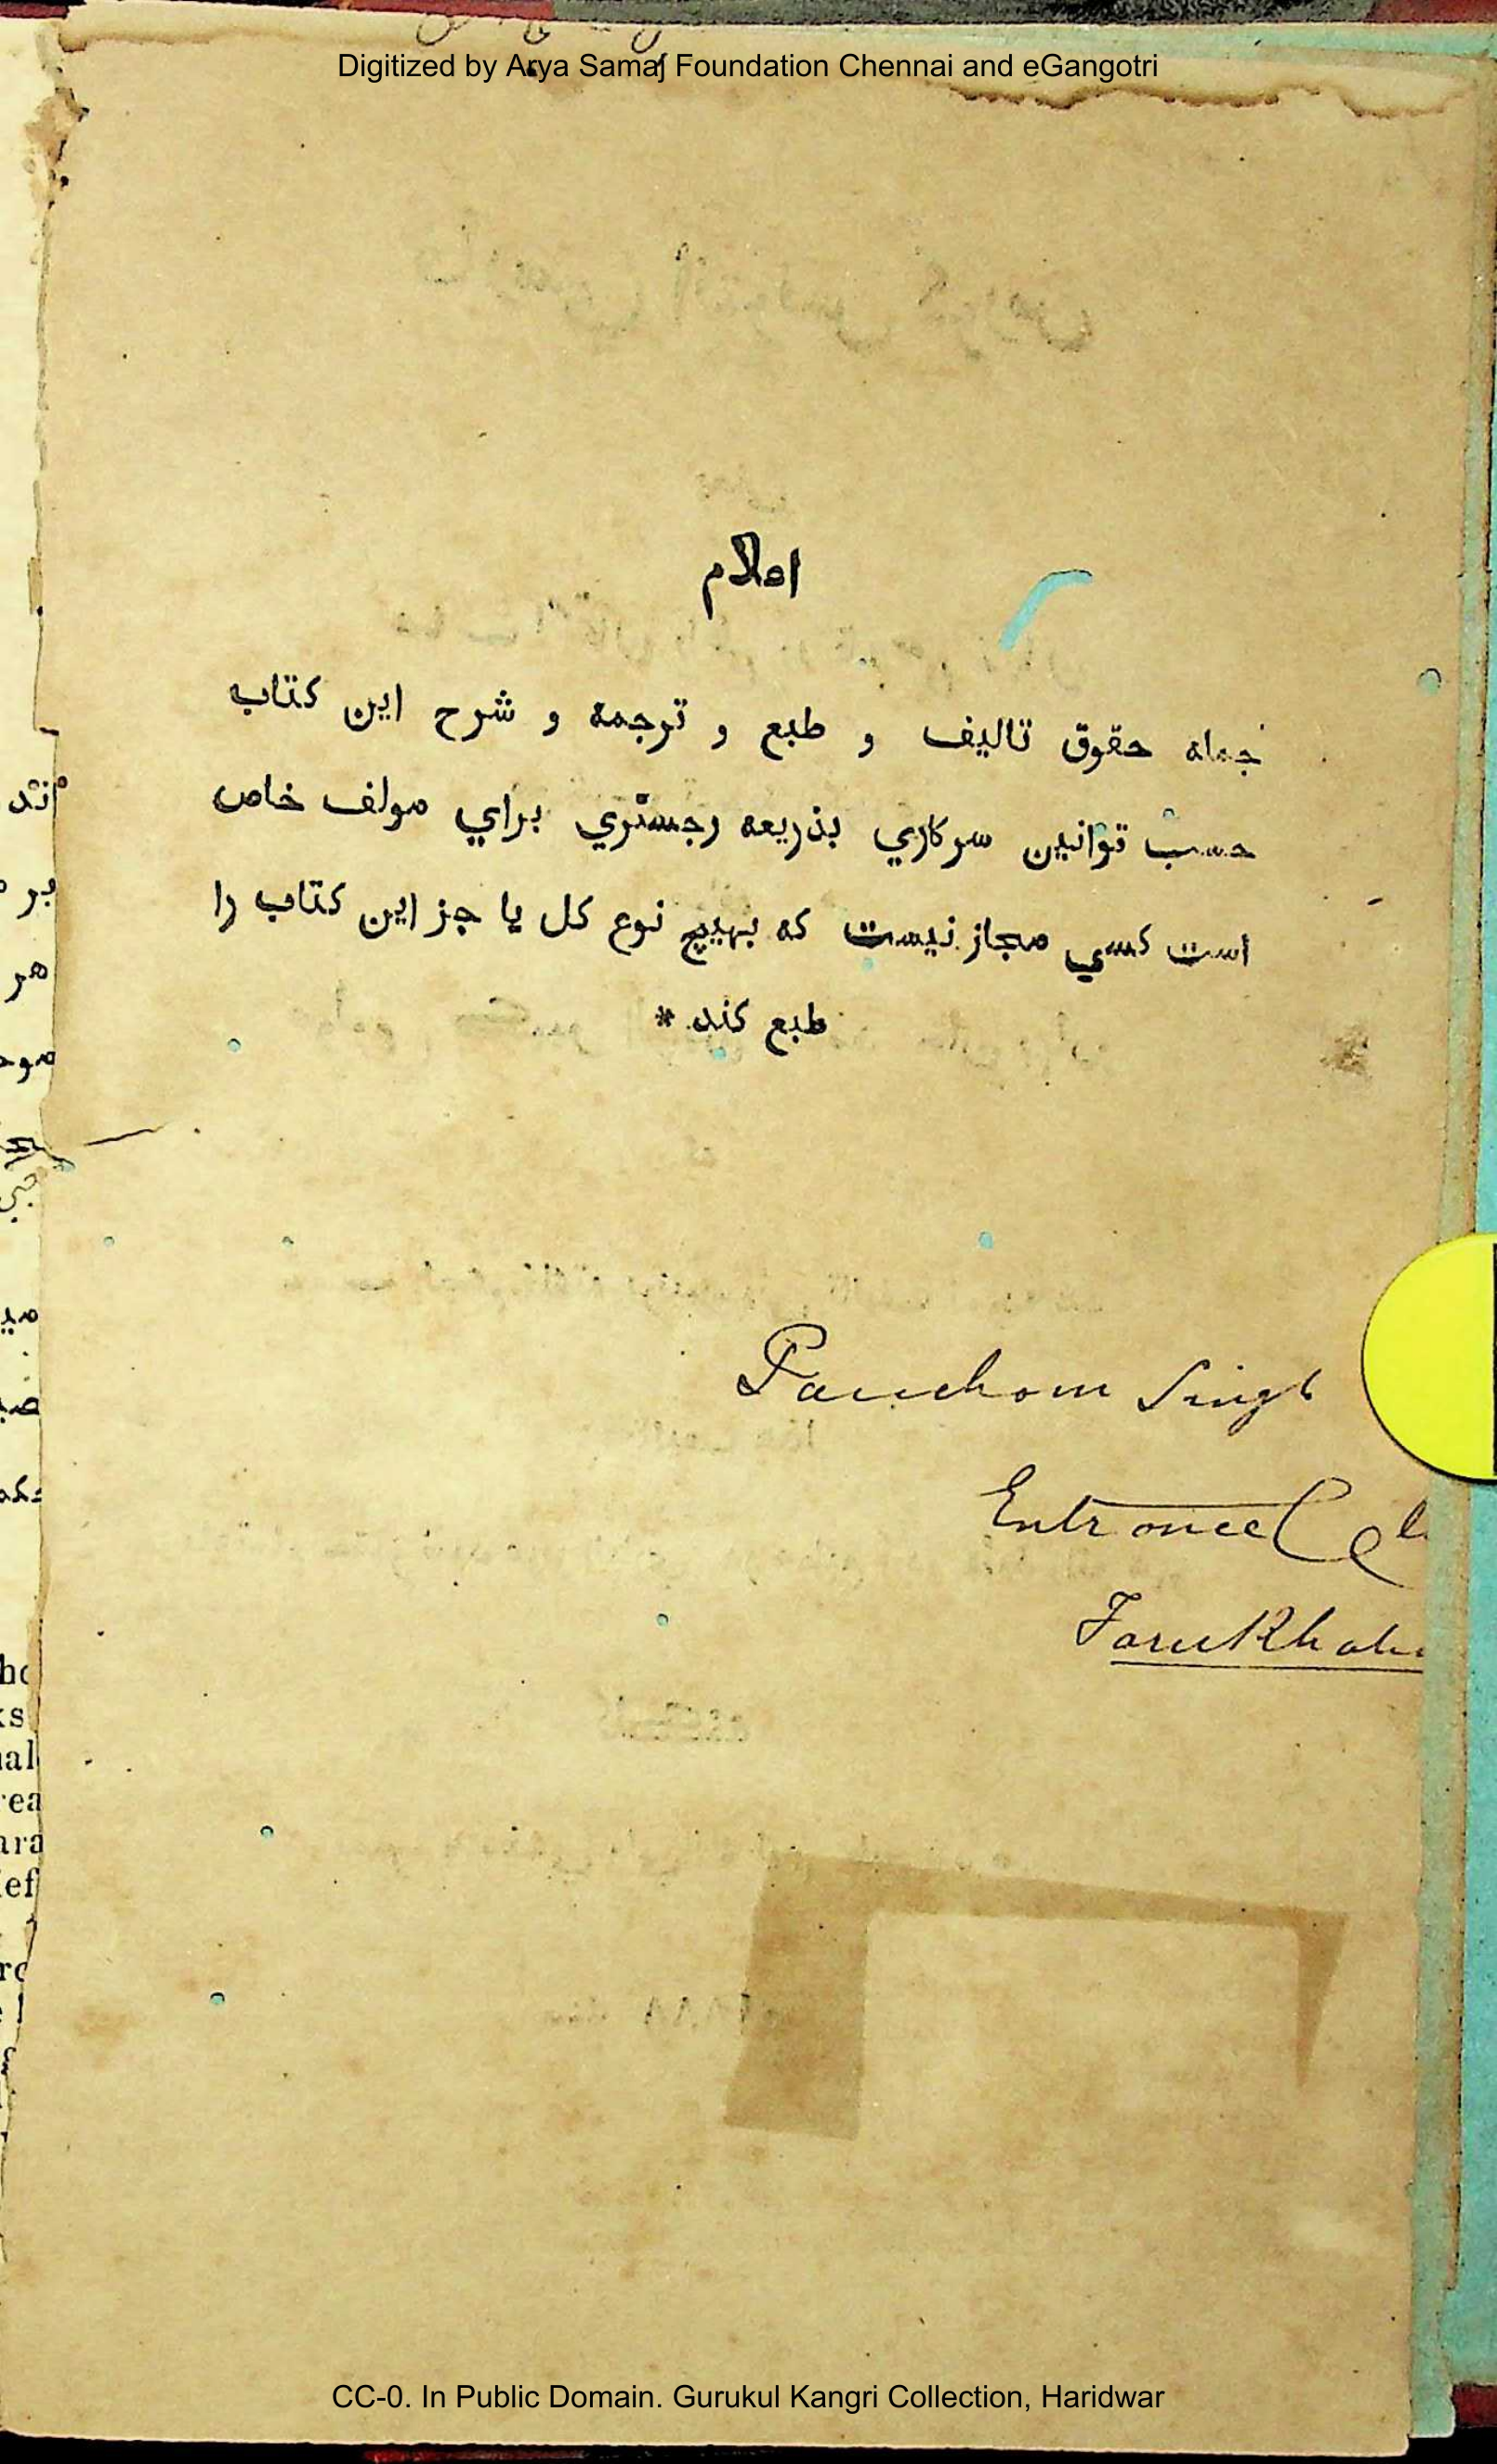 Digitized by Arya Samaj Foundation Chennai and eGangotri
اعلام
جمله حقوق تاليف و طبع و ترجمه و شرح اين كتاب
حسب قوانين سركاري بذريعه رجستري براي مولف خاص
است كسي مجاز نيست كه بهيچ نوع كل يا جز اين كتاب را
طبع كند *
Pancham Singh
Entrance Cl
Farukhaba
CC-0. In Public Domain. Gurukul Kangri Collection, Haridwar